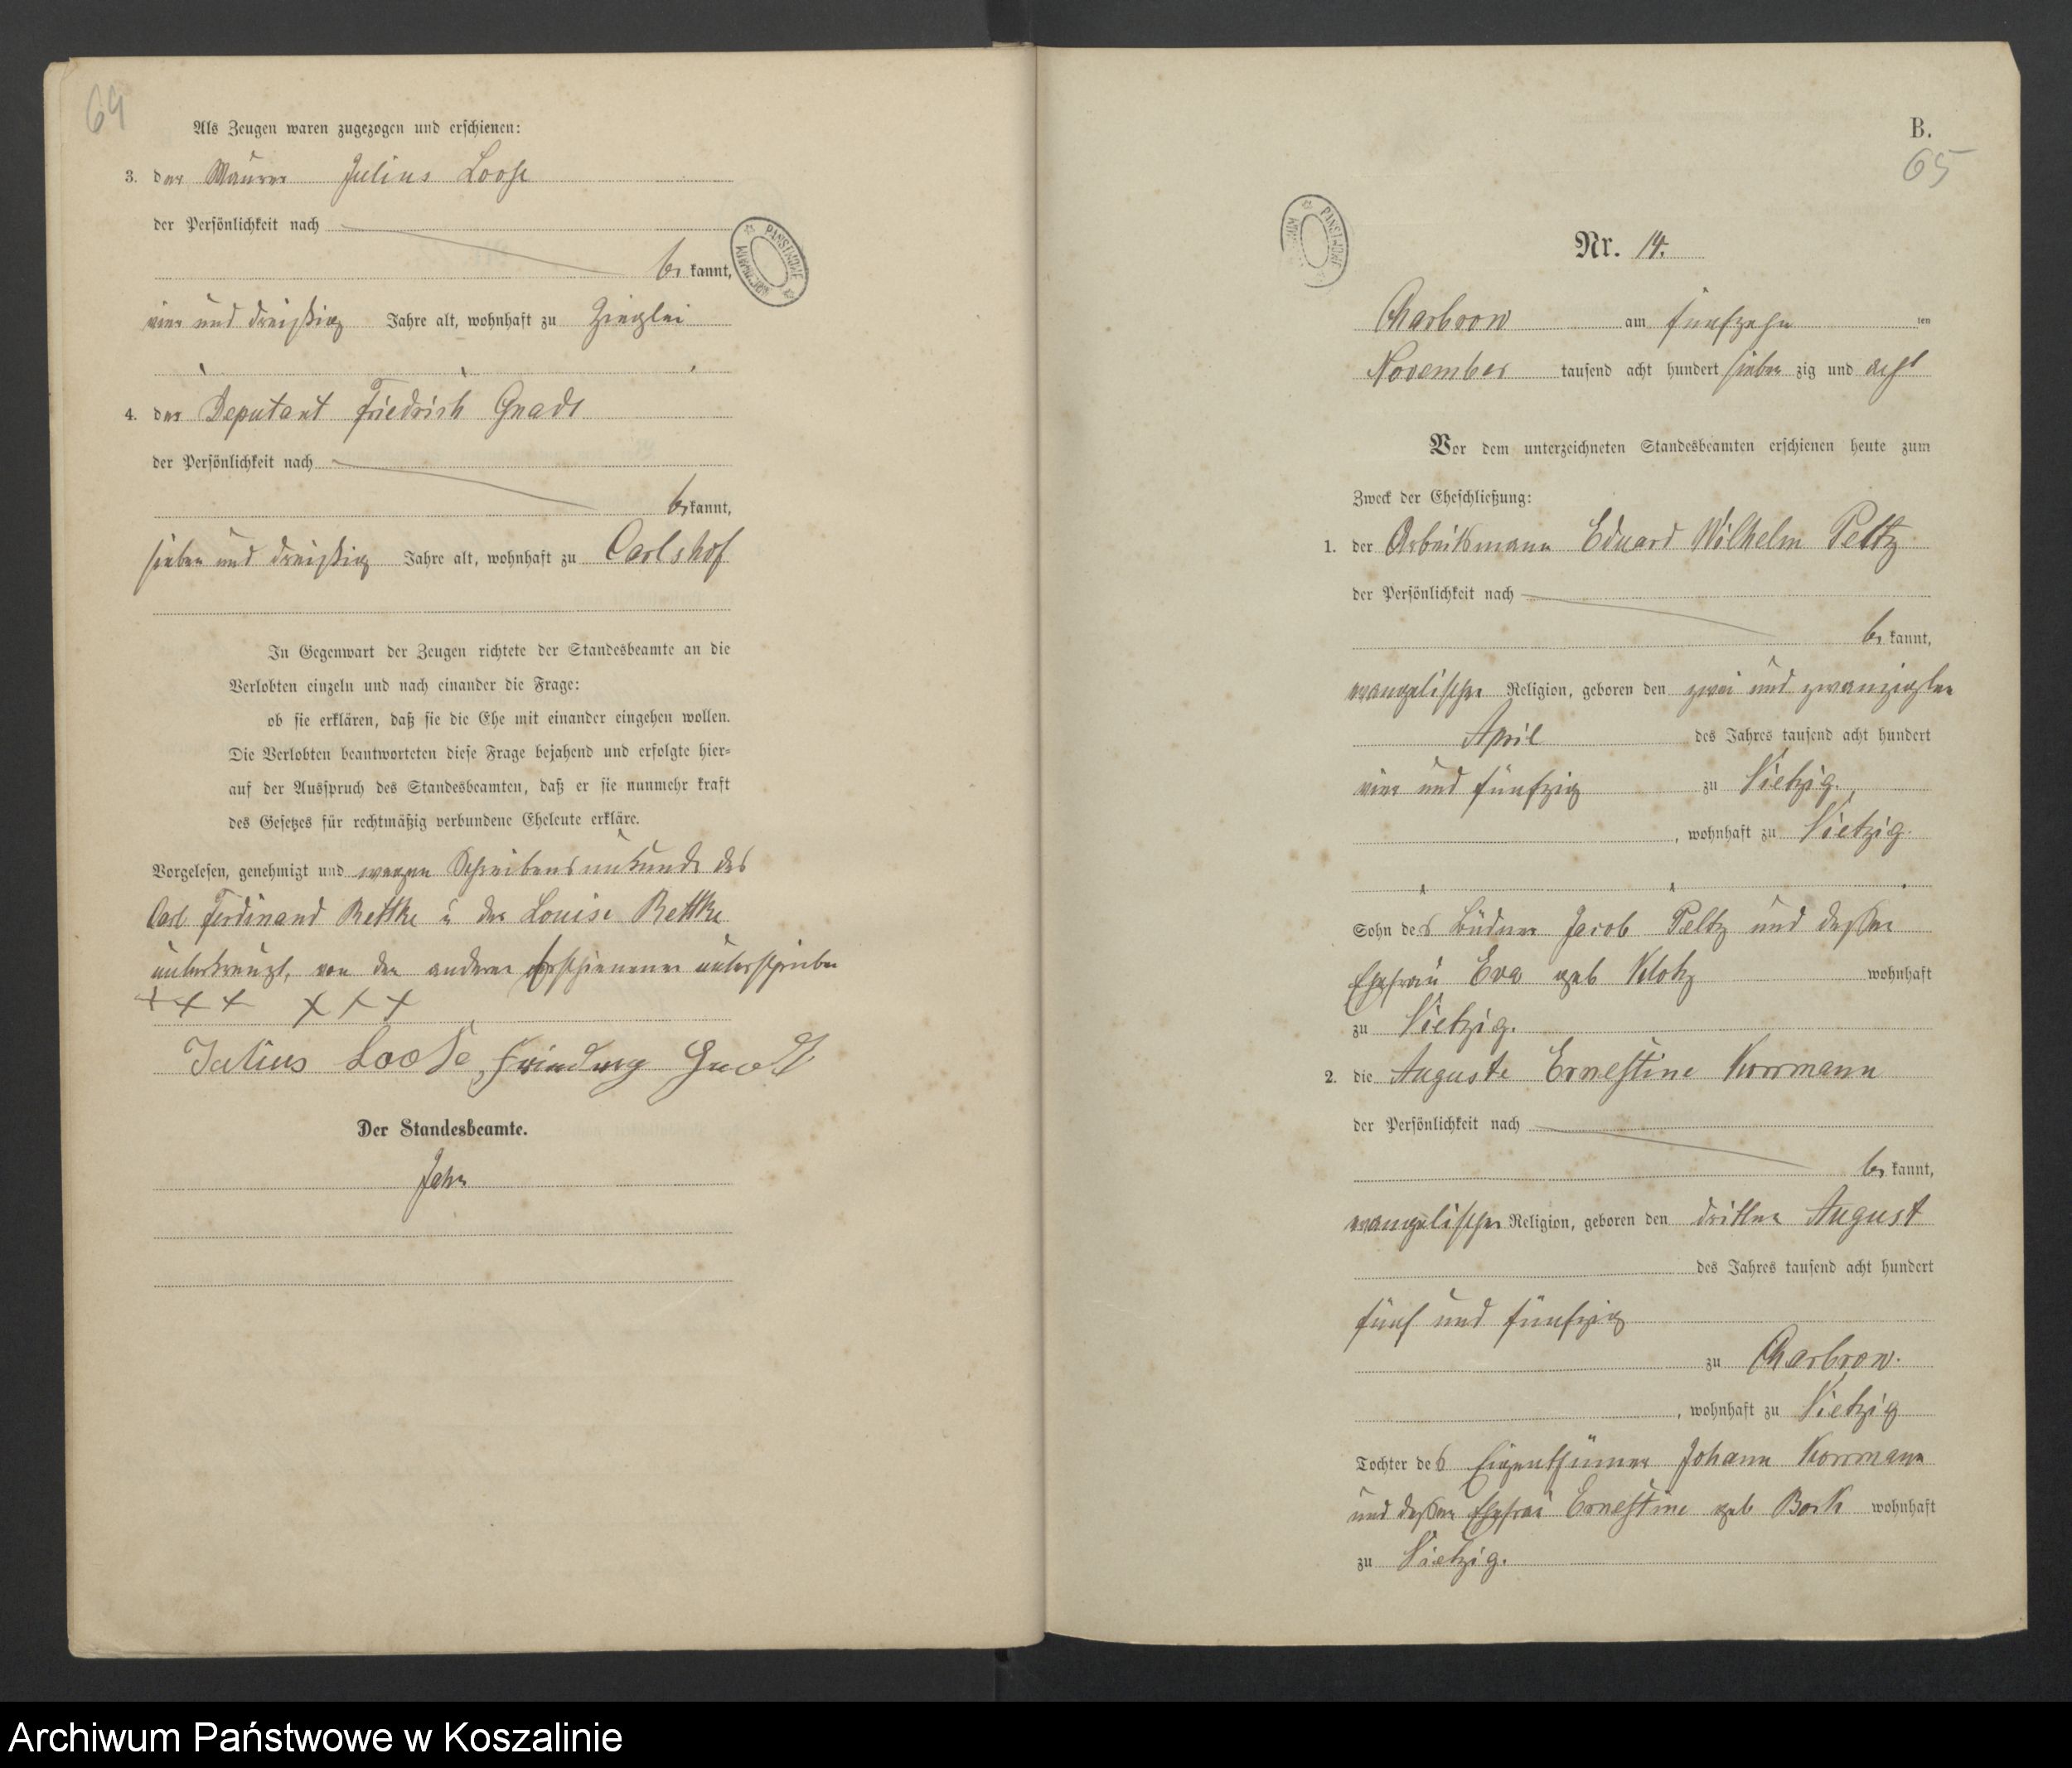 64
Als Zeugen waren zugezogen und erschienen:
3. der Maurer Julius Loose
der Persönlichkeit nach
be kannt,
vier und dreißig Jahre alt, wohnhaft zu
4. der Deputant Friedrich Gnadt
der Persönlichkeit nach
be kannt,
sieben und dreißig Jahre alt, wohnhaft zu Carlshof
In Gegenwart der Zeugen richtete der Standesbeamte an die
Verlobten einzeln und nach einander die Frage:
ob sie erklären, daß sie die Ehe mit einander eingehen wollen.
Die Verlobten beantworteten diese Frage bejahend und erfolgte hier=
auf der Ausspruch des Standesbeamten, daß er sie nunmehr kraft
des Gesetzes für rechtmäßig verbundene Eheleute erkläre.
Vorgelesen, genehmigt und wegen Schreibensunkunde des
Carl Ferdinand Rettke u der Louise Rettke
unterkreuzt, von den anderen Erschienenen unterschrieben
+ + + + + +
Julius Loose, Friedrich Gnadt
Der Standesbeamte.
Jahn
B.
65
Nr. 14.
Charbrow am fünfzehn ten
November tausend acht hundert sieben zig und acht
Vor dem unterzeichneten Standesbeamten erschienen heute zum
Zweck der Eheschließung:
1. der Arbeitsmann Eduard Wilhelm Peltz
der Persönlichkeit nach
be kannt,
evangelischer Religion, geboren den zwei und zwanzigsten
April des Jahres tausend acht hundert
vier und fünfzig zu Vietzig.
, wohnhaft zu Vietzig.
Sohn des Büdner Jacob Peltz und dessen
Ehefrau Eva geb Klotz wohnhaft
zu Vietzig.
2. die Auguste Ernestine Korrmann
der Persönlichkeit nach
be kannt,
evangelischer Religion, geboren den dritten August
des Jahres tausend acht hundert
fünf und fünfzig
zu Charbrow.
, wohnhaft zu Vietzig
Tochter des Eigenthümer Johann Korrmann
und dessen Ehefrau Ernestine geb Bork wohnhaft
zu Vietzig.
Archiwum Państwowe w Koszalinie